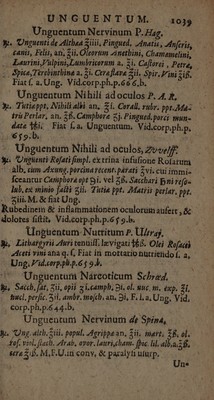 UNGUENTUM. 1039
Unguentum Nervinum P. Hag.
℞. Unguenti de Althæa ℥iiii, Pingued. Anatis, Anseris,
canis, Felis, an. ℥ii. Oleorum Anethini, Chamæmelini,
Laurini, Vulpini, Lumbricorum a. ℥i. Castorei, Petræ,
Spicæ, Terebinthinæ a. ℥i. Ceræ ℥ii. Spir. Vini ℥iß.
Fiat f. a. Ung. Vid. corp. ph. p. 666. b.
Unguentum Nihili ad oculos P. A. R.
℞. Tutiæ ppt. Nihili albi an. ℥i. Corall. rubr. ppt. Ma-
tris Perlar. an. ℥ß. Camphoræ ℥i. Pingued. porci mun-
data fiat f. a. Unguentum. Vid. corp. ph. p.
659. b.
Unguentum Nihili ad oculos, Zwelff.
℞. Unguenti Rosati simpl. ex trina infusione Rosarum
alb. cum Axung. porcina recent. parati ℥vi. cui immi-
sceantur Camphoræ vel ℥ß. Sacchari
lub. ex minio facti ℥ii. Tutia ppt. Matris perlar. ppt.
℥iii. M. & fiat Ung.
Rubedinem & inflammationem oculorum aufert, &
dolores sistit. Vid. corp. ph. p. 659. b.
Unguentum Nutritum P. Ultraj.
℞. Lithargyrii Auri tenuiss. lævigati Olei Rosacei
Aceti vini ana q. s. Fiat in mortario nutriendo f. a.
Ung. Vid. corp. ph. p. 659. b.
Unguentum Narcoticum Schrœd.
℞. Sacch. sat. ℥ii, opii camph. ol. nuc. m. exp. ℥i.
nucl. persic. ℥ii. ambr. mosch. an. F. f. a. Ung. Vid.
corp. ph. p. 644. b.
Unguentum Nervinum de Spina,
℞. Ung. alth. ℥iii. popul. Agrippæ an. ℥ii. mart. ℥ß. ol.
ros. viol. Arab. ovor. lauri, cham. lil. alb. a. ℥ß.
cera ℥iß. M. F. U. in conv. & paralysi usurp.
Un-